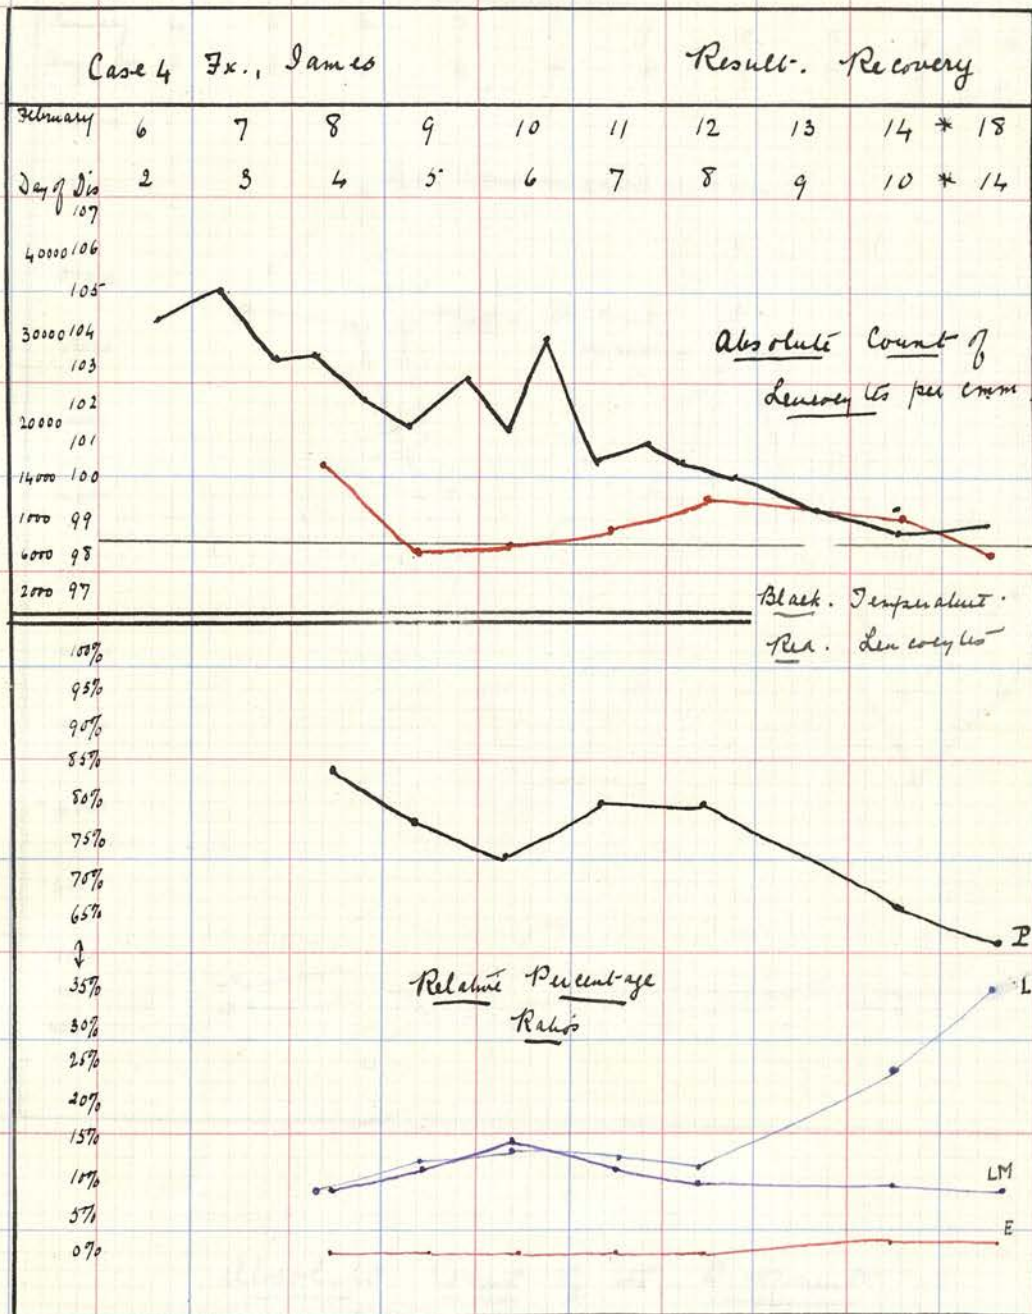 Case 4 Fx., James Result. Recovery
February 6 7 8 9 10 11 12 13 14 * 18
Day of Dis 2 3 4 5 6 7 8 9 10 * 14
107
40000 106
105
30000 104
103
20000 102
101
14000 100
1000 99
6000 98
2000 97
Absolute Count of
Leucocytes per cmm
Black. Temperature.
Red. Leucocytes
100%
95%
90%
85%
80%
75%
70%
65%
↕
35%
30%
25%
20%
15%
10%
5%
0%
P
L
Relative Percentage
Ratios
LM
E